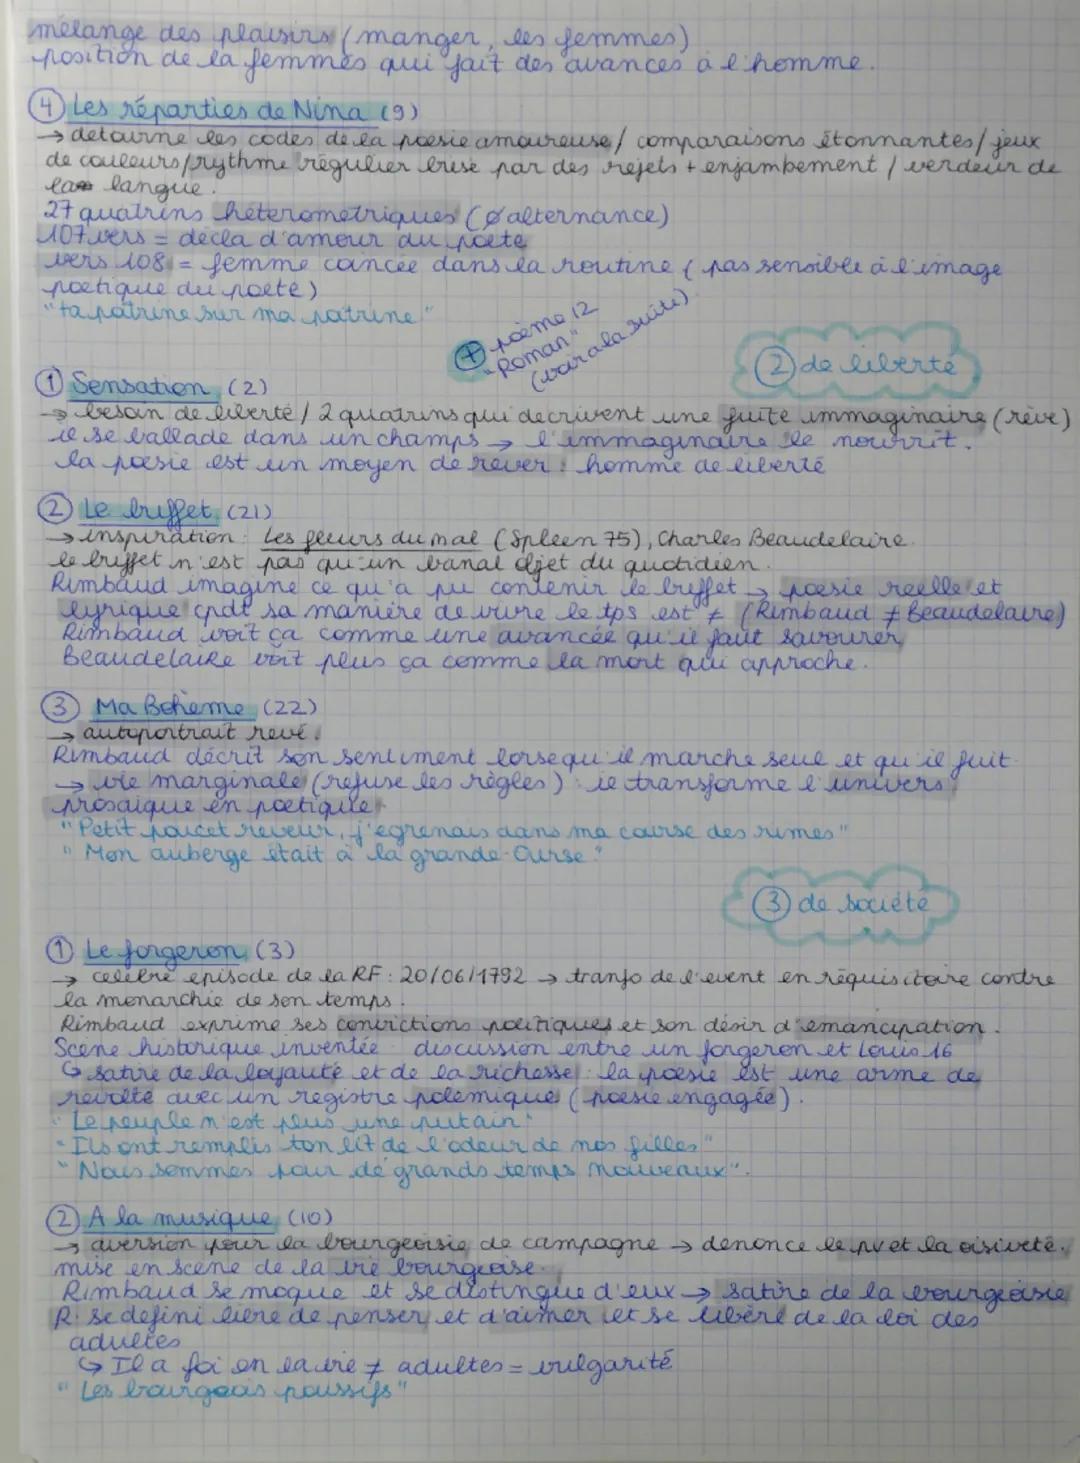 mélange des plaisirs (manger, les femmes)
position de la femmes qui fait des avances à l'homme.
④ Les réparties de Nina (9)
→ detourne les codes de la poesie amoureuse / comparaisons étonnantes / jeux
de couleurs / rythme régulier brisé par des rejets + enjambement / verdeur de
la langue.
27 quatrins hétérométriques (ø alternance)
107 vers = décla d'amour du poète
vers 108 = femme coincée dans la routine (pas sensible à l'image
poétique du poète)
"ta poitrine sur ma poitrine"
+ poème 12
"Roman"
(voir à la suite)
② de liberté
① Sensation (2)
→ besoin de liberté / 2 quatrins qui decrivent une fuite immaginaire (rêve)
il se ballade dans un champs → l'immaginaire le nourrit.
la poésie est un moyen de rêver : homme de liberté
② Le buffet (21)
→ inspiration : Les fleurs du mal (Spleen 75), Charles Beaudelaire.
le buffet n'est pas qu'un banal objet du quotidien.
Rimbaud imagine ce qu'a pu contenir le buffet → poesie reelle et
lyrique cpdt sa manière de vivre le tps est ≠ (Rimbaud ≠ Beaudelaire)
Rimbaud voit ça comme une avancée qu'il faut savourer
Beaudelaire voit plus ça comme la mort qui approche.
③ Ma Bohème (22)
→ autoportrait revé.
Rimbaud décrit son sentiment lorsequ'il marche seul et qu'il fuit
→ vie marginale (refuse les règles) : il transforme l'univers
prosaïque en poétique
"Petit poucet reveur, j'egrenais dans ma course des rimes"
"Mon auberge était à la grande-Ourse"
③ de société
① Le forgeron (3)
→ celèbre episode de la RF : 20/06/1792 → tranfo de l'event en réquisitoire contre
la monarchie de son temps.
Rimbaud exprime ses convictions politiques et son désir d'emancipation.
Scène historique inventée discussion entre un forgeron et Louis 16
↳ satire de la loyauté et de la richesse : la poésie est une arme de
révolte avec un registre polemique (poesie engagée).
"Le peuple n'est plus une putain"
"Ils ont remplis ton lit de l'odeur de nos filles"
"Nous sommes pour de grands temps nouveaux".
② A la musique (10)
→ aversion pour la bourgeoisie de campagne → denonce le pv et la oisiveté.
mise en scène de la vie bourgeoise.
Rimbaud se moque et se distingue d'eux → satire de la bourgeoisie
R. se defini libre de penser et d'aimer et se libère de la loi des
adultes
↳ Il a foi en la vie ≠ adultes = vulgarité
"Les bourgeois poussifs"